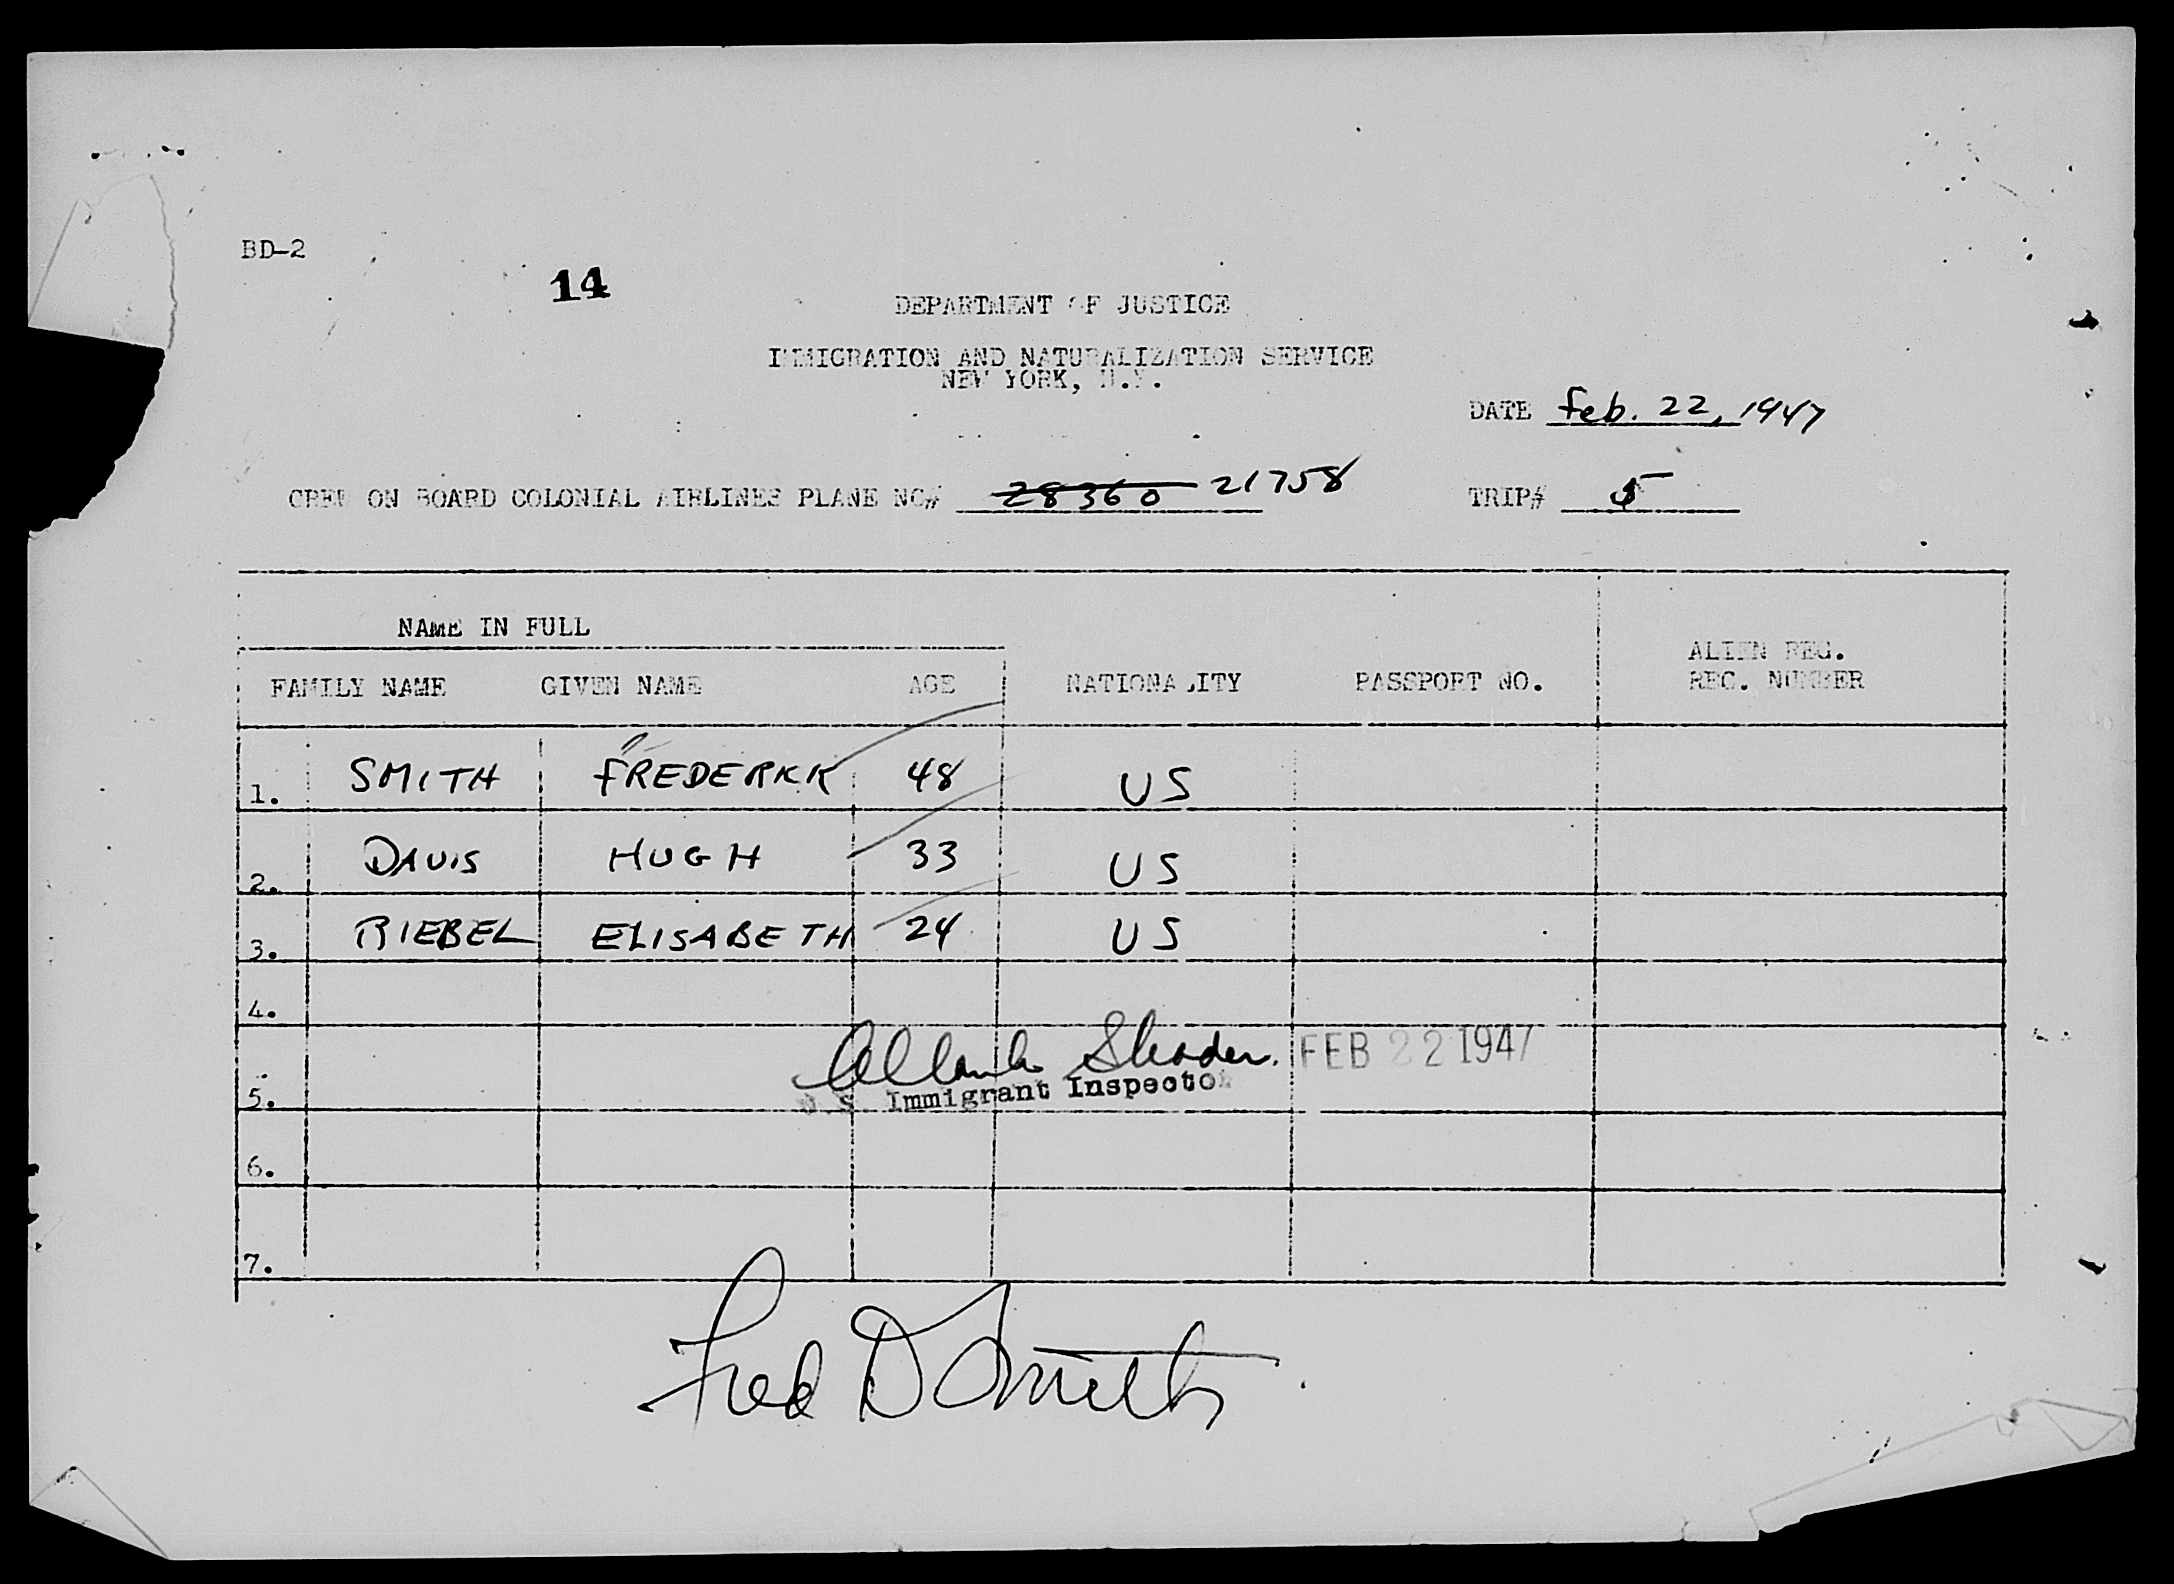 BD-2
14
DEPARTMENT OF JUSTICE
IMMIGRATION AND NATURALIZATION SERVICE
NEW YORK, N.Y.
DATE Feb. 22, 1947
CREW ON BOARD COLONIAL AIRLINES PLANE NC# 28360 21758 TRIP# 5
NAME IN FULL
FAMILY NAME GIVEN NAME AGE NATIONALITY PASSPORT NO. ALIEN REG.
REC. NUMBER
1. SMITH FREDERKK 48 US
2. DAVIS HUGH 33 US
3. RIEBEL ELISABETH 24 US
4.
FEB 22 1947
5. U S Immigrant Inspector
6.
7.
Fred D Smith